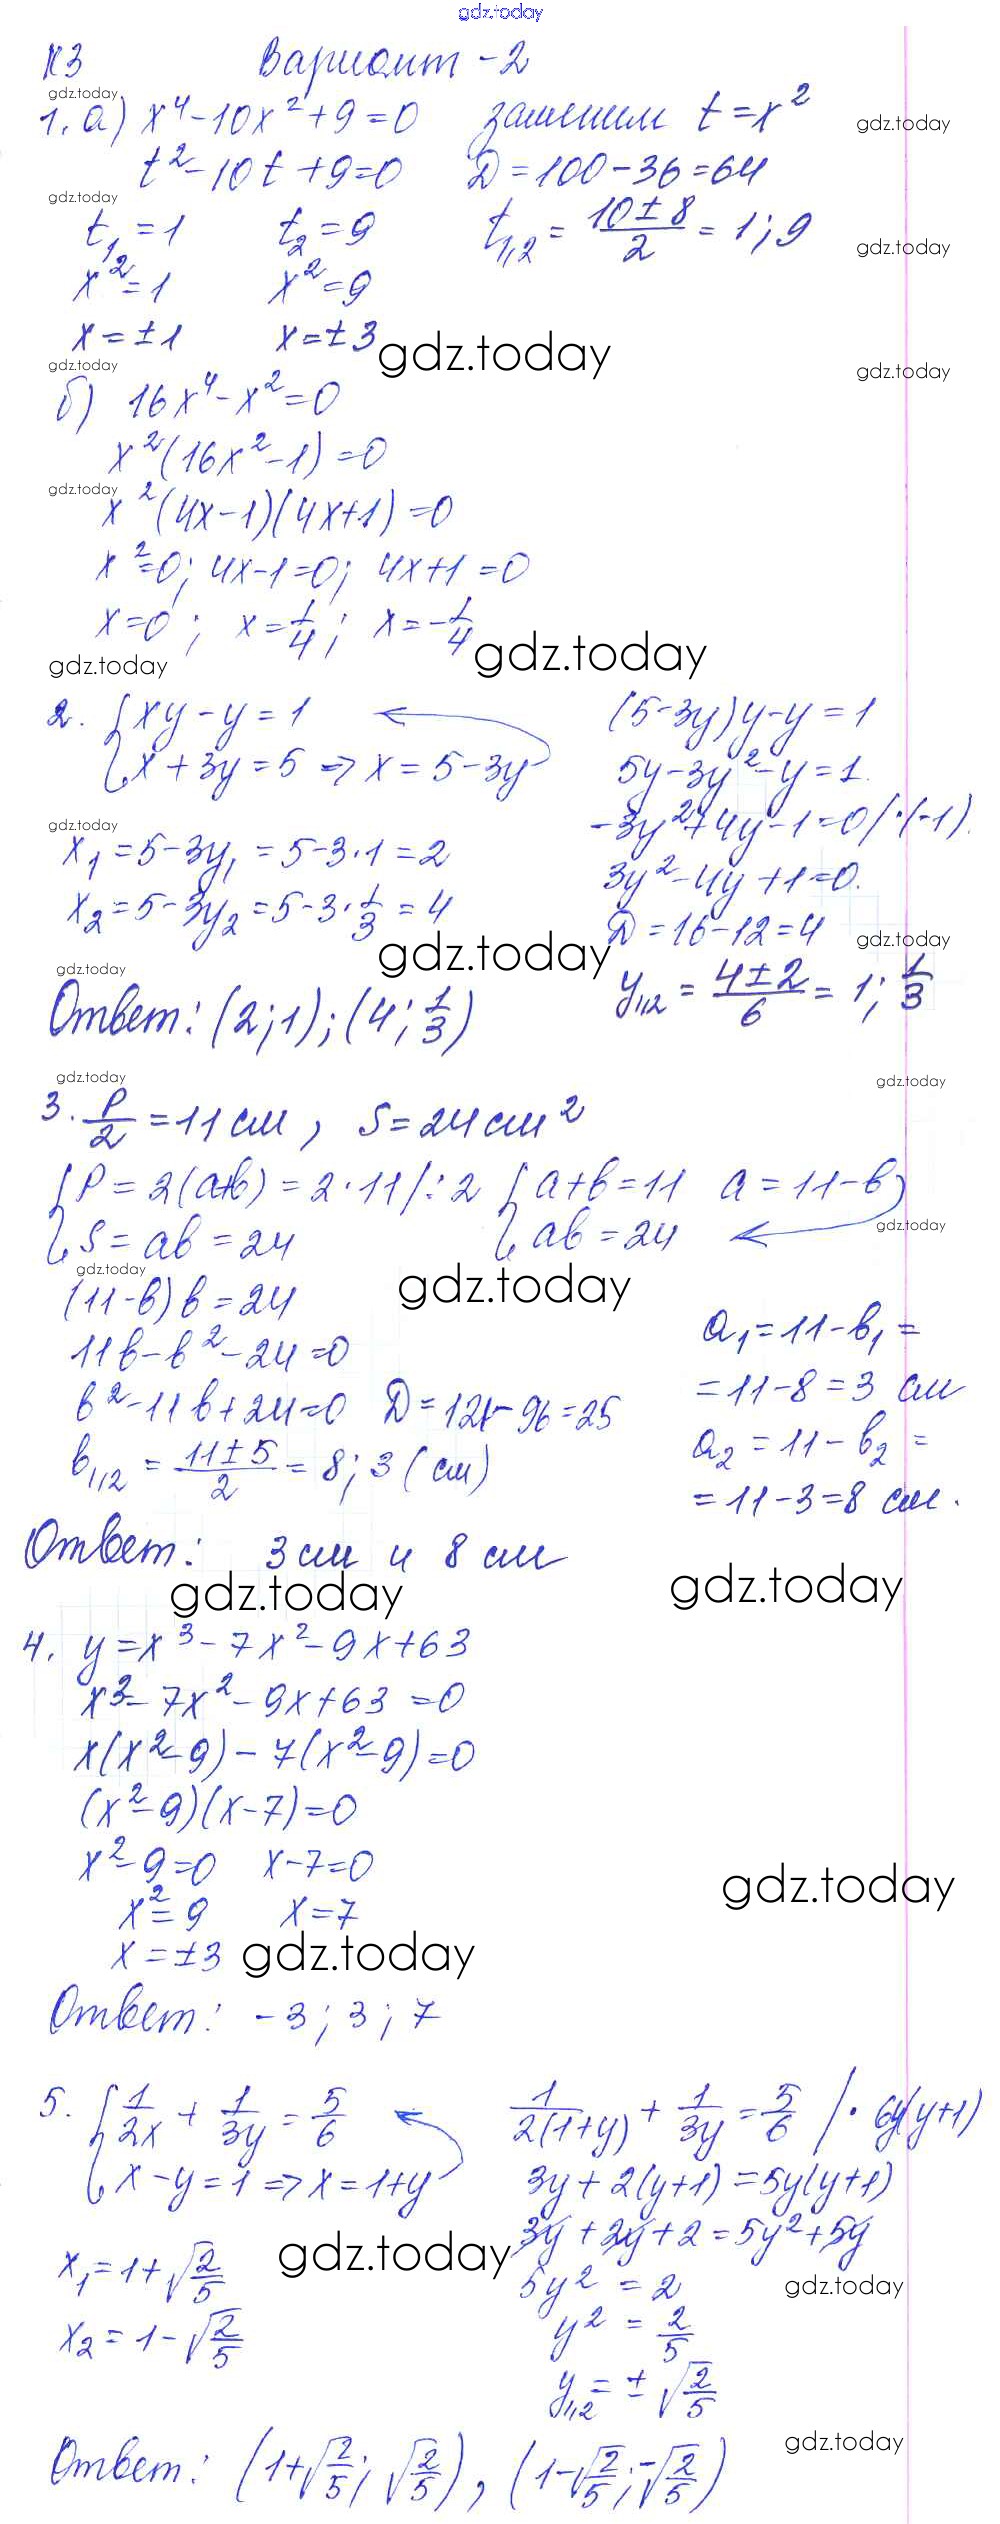 gdz.today
К3 Вариант -2
gdz.today
1. а) x⁴-10x²+9=0 заменим t=x²
gdz.today
t²-10t+9=0 D=100-36=64
gdz.today
t₁=1 t₂=9 t₁,₂=(10±8)/2=1;9
gdz.today
x²=1 x²=9
x=±1 x=±3
gdz.today
gdz.today
gdz.today
б) 16x⁴-x²=0
x²(16x²-1)=0
gdz.today
x²(4x-1)(4x+1)=0
x²=0; 4x-1=0; 4x+1=0
x=0; x=1/4; x=-1/4
gdz.today
gdz.today
2. { xy-y=1 (5-3y)y-y=1
x+3y=5 => x=5-3y 5y-3y²-y=1.
gdz.today
-3y²+4y-1=0 /·(-1).
x₁=5-3y₁=5-3·1=2 3y²-4y+1=0.
x₂=5-3y₂=5-3·1/3=4 D=16-12=4
gdz.today
gdz.today
gdz.today
y₁,₂=(4±2)/6=1;1/3
Ответ: (2;1);(4;1/3)
gdz.today
gdz.today
3. P/2=11см, S=24см²
{ P=2(a+b)=2·11 /:2 { a+b=11 a=11-b
S=ab=24 ab=24
gdz.today
gdz.today
gdz.today
(11-b)b=24
11b-b²-24=0 a₁=11-b₁=
b²-11b+24=0 D=121-96=25 =11-8=3 см
b₁,₂=(11±5)/2=8;3 (см) a₂=11-b₂=
=11-3=8 см.
Ответ: 3см и 8см
gdz.today
gdz.today
4. y=x³-7x²-9x+63
x³-7x²-9x+63=0
x(x²-9)-7(x²-9)=0
(x²-9)(x-7)=0
x²-9=0 x-7=0
gdz.today
x²=9 x=7
x=±3
gdz.today
Ответ: -3;3;7
5. { 1/2x+1/3y=5/6 1/2(1+y)+1/3y=5/6 /·6y(y+1)
x-y=1 => x=1+y 3y+2(y+1)=5y(y+1)
3y+2y+2=5y²+5y
gdz.today
x₁=1+√2/5 5y²=2
gdz.today
x₂=1-√2/5 y²=2/5
y₁,₂=±√2/5
gdz.today
Ответ: (1+√2/5;√2/5), (1-√2/5;-√2/5)